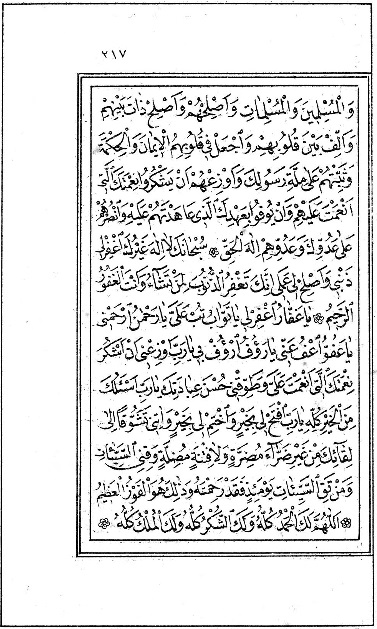 ٢١٧
وَالْمُسْلِمِينَ وَالْمُسْلِمَاتِ وَأَصْلِحْهُمْ وَأَصْلِحْ ذَاتَ بَيْنِهِمْ
وَأَلِّفْ بَيْنَ قُلُوبِهِمْ وَاجْعَلْ فِي قُلُوبِهِمُ الْإِيمَانَ وَالْحِكْمَةَ
وَثَبِّتْهُمْ عَلَى مِلَّةِ رَسُولِكَ وَأَوْزِعْهُمْ أَنْ يَشْكُرُوا نِعْمَتَكَ الَّتِي
أَنْعَمْتَ عَلَيْهِمْ وَأَنْ يُوفُوا بِعَهْدِكَ الَّذِي عَاهَدْتَهُمْ عَلَيْهِ وَانْصُرْهُمْ
عَلَى عَدُوِّكَ وَعَدُوِّهِمْ إِلٰهَ الْحَقِّ ۞ سُبْحَانَكَ لَا إِلٰهَ غَيْرُكَ اغْفِرْ لِي
ذَنْبِي وَأَصْلِحْ لِي عَمَلِي إِنَّكَ تَغْفِرُ الذُّنُوبَ لِمَنْ تَشَاءُ وَأَنْتَ الْغَفُورُ
الرَّحِيمُ ۞ يَا غَفَّارُ اغْفِرْ لِي يَا تَوَّابُ تُبْ عَلَيَّ يَا رَحْمٰنُ ارْحَمْنِي
يَا عَفُوُّ اعْفُ عَنِّي يَا رَؤُفُ ارْؤُفْ بِي يَا رَبِّ أَوْزِعْنِي أَنْ أَشْكُرَ
نِعْمَتَكَ الَّتِي أَنْعَمْتَ عَلَيَّ وَطَوِّقْنِي حُسْنَ عِبَادَتِكَ يَا رَبِّ أَسْئَلُكَ
مِنَ الْخَيْرِ كُلِّهِ يَا رَبِّ افْتَحْ لِي بِخَيْرٍ وَاخْتِمْ لِي بِخَيْرٍ وَآتِنِي تَشَوُّقًا إِلَى
لِقَائِكَ مِنْ غَيْرِ ضَرَّاءَ مُضِرَّةٍ وَلَا فِتْنَةٍ مُضِلَّةٍ وَقِنِي السَّيِّئَاتِ
وَمَنْ تَقِ السَّيِّئَاتِ يَوْمَئِذٍ فَقَدْ رَحِمْتَهُ وَذٰلِكَ هُوَ الْفَوْزُ الْعَظِيمُ
۞ اللّٰهُمَّ لَكَ الْحَمْدُ كُلُّهُ وَلَكَ الشُّكْرُ كُلُّهُ وَلَكَ الْمُلْكُ كُلُّهُ ۞